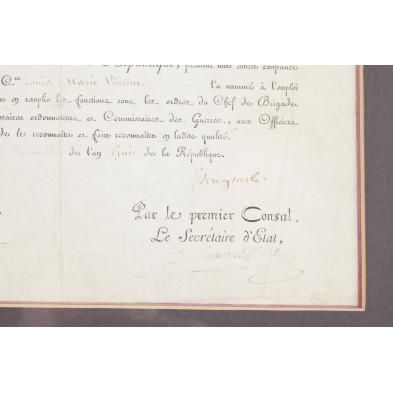 République, prenant une entière confiance
C.en Louis Marie Vincent l'a nommé à l'emploi
en remplir les fonctions sous les ordres du Chef de Brigade
ordonnateurs et Commissaires des Guerres, aux Officiers
de le reconnaître et faire reconnaître en ladite qualité.
de l'an de la République.
Bonaparte
Par le premier Consul.
Le Secrétaire d'Etat,